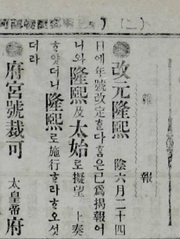 (二)
報
改元隆熙 陰六月二十四
日에年號改定ᄒᆞᆫ다ᄒᆞᆷ은已爲揭報어
니와隆熙及太始로擬望上奏
ᄒᆞ얏더니隆熙로施行ᄒᆞ라ᄒᆞ오셧
더라
府宮號裁可 太皇帝府